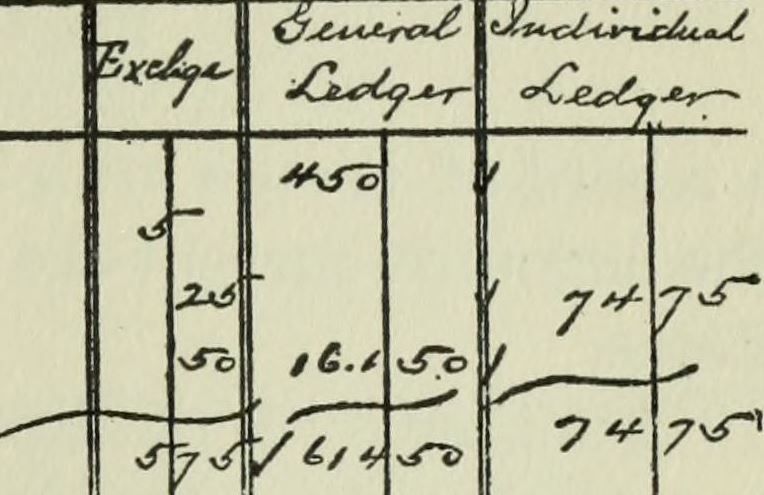 Exchge General Ledger Individual Ledger
450 ✓
5
25 ✓ 74 75
50 161 50 ✓
5 75 ✓ 614 50 74 75